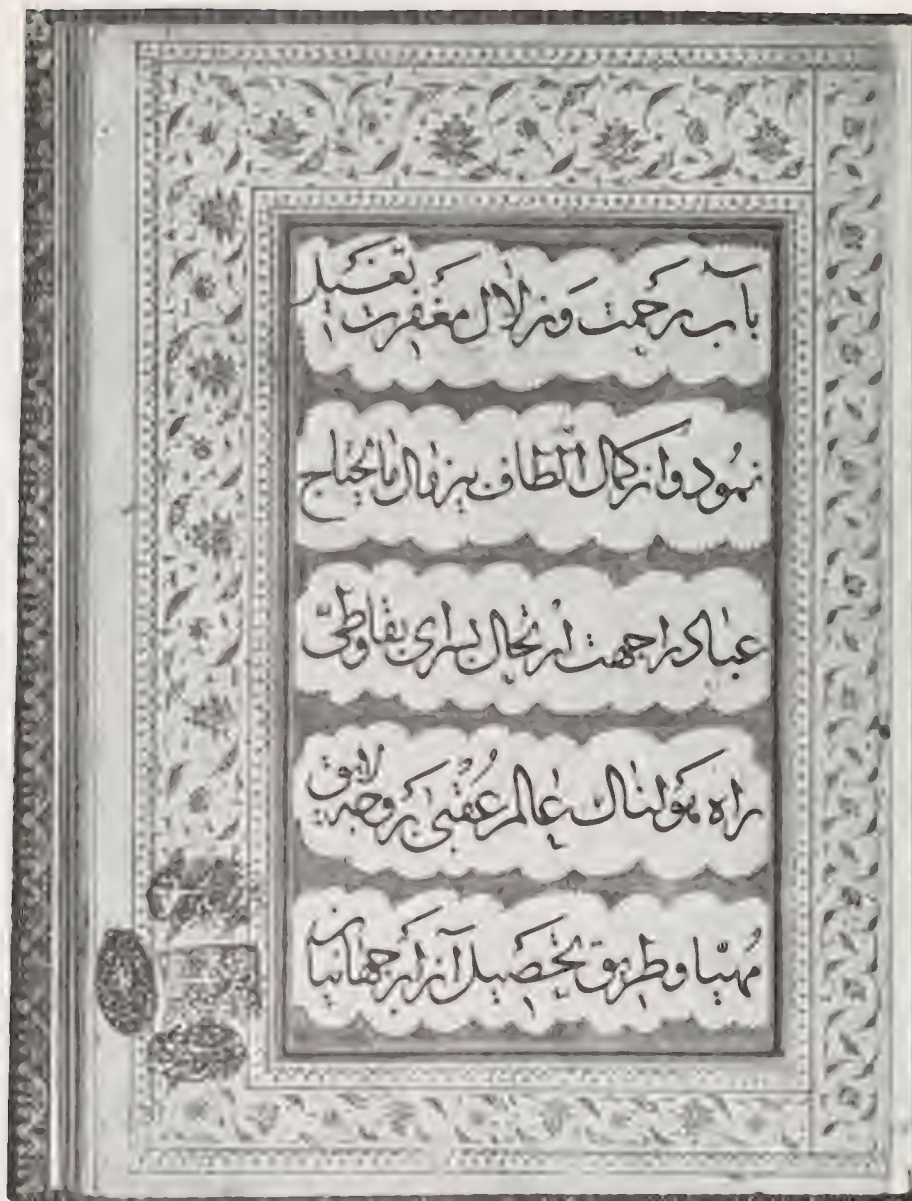 بآب رحمت و زلال مغفرت تغسیل
نمود و از کمال الطاف بیزوال مایحتاج
عباد را جهت ارتحال بسرای بقا و طیّ
راه هولناک عالم عُقبیٰ بر وجه لایق
مُهیّا و طریق تحصیل آنرا بر جهانیان